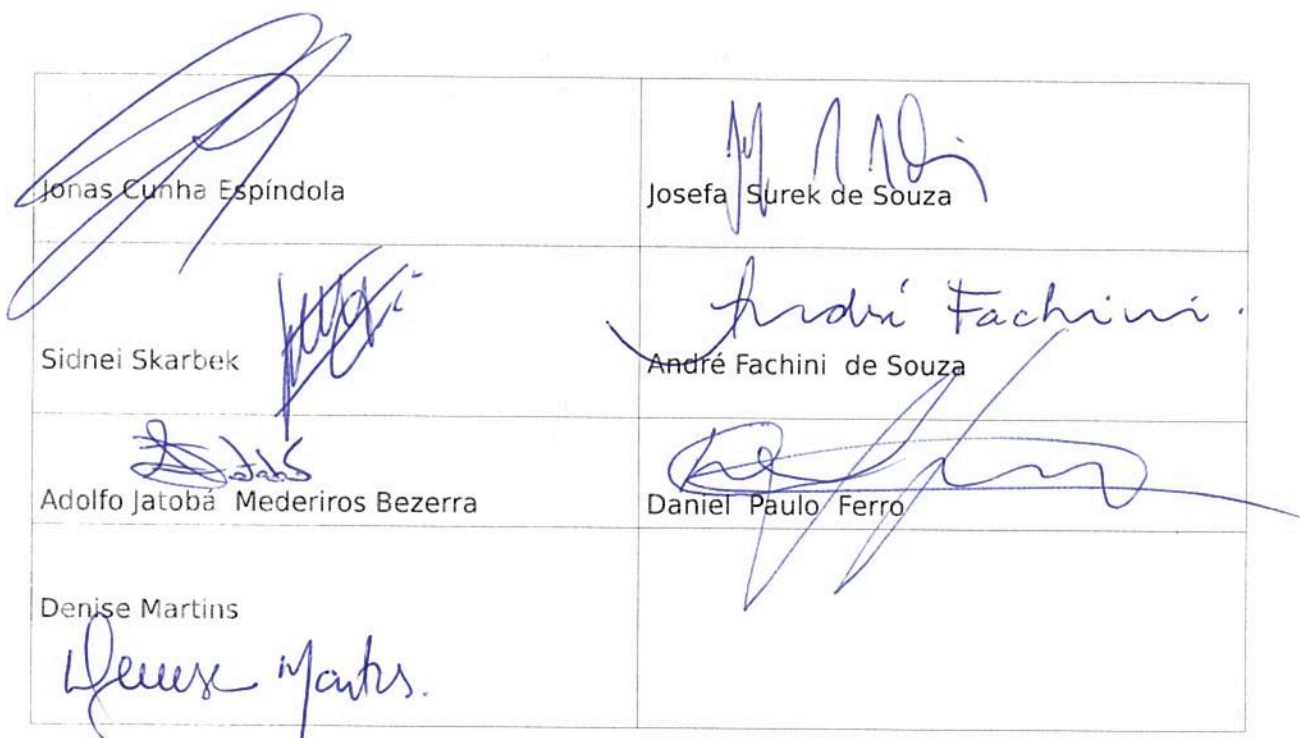 Jonas Cunha Espíndola
Josefa Surek de Souza
André Fachini.
Sidnei Skarbek
André Fachini de Souza
Jatobá
Adolfo Jatobá Mederiros Bezerra
Daniel Paulo Ferro
Denise Martins
Denise Martins.